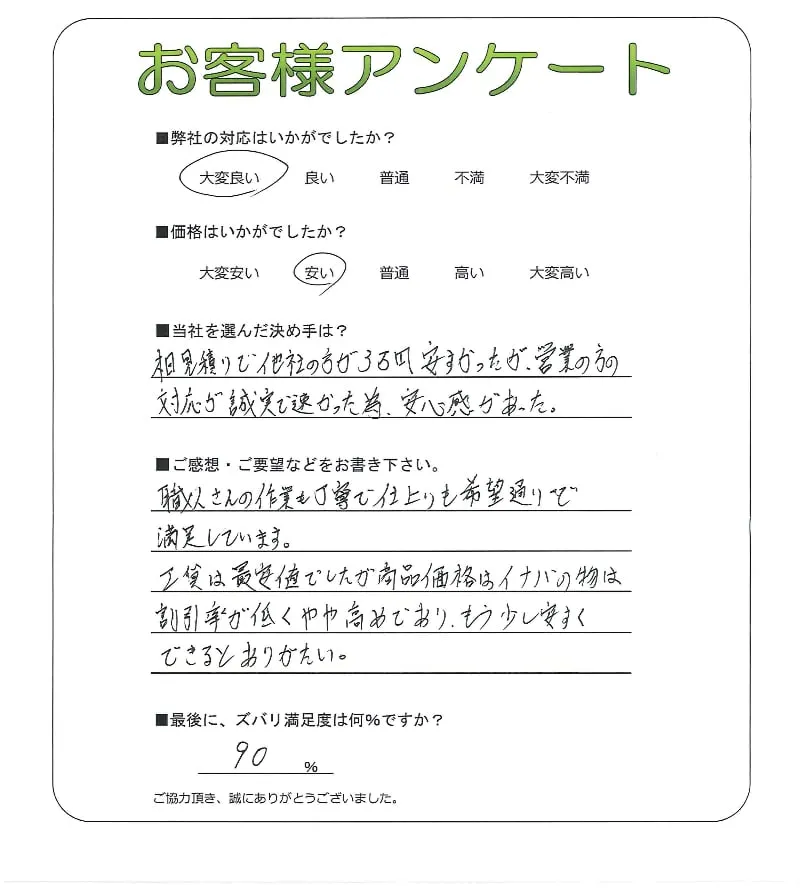 お客様アンケート
■弊社の対応はいかがでしたか？
大変良い 良い 普通 不満 大変不満
■価格はいかがでしたか？
大変安い 安い 普通 高い 大変高い
■当社を選んだ決め手は？
相見積りで他社の方が3万円安すかったが、営業の方の
対応が誠実で速かった為、安心感があった。
■ご感想・ご要望などをお書き下さい。
職人さんの作業も丁寧で仕上りも希望通りで
満足しています。
工賃は最安値でしたが商品価格はイナバの物は
割引率が低くやや高めであり、もう少し安すく
できるとありがたい。
■最後に、ズバリ満足度は何％ですか？
90 %
ご協力頂き、誠にありがとうございました。